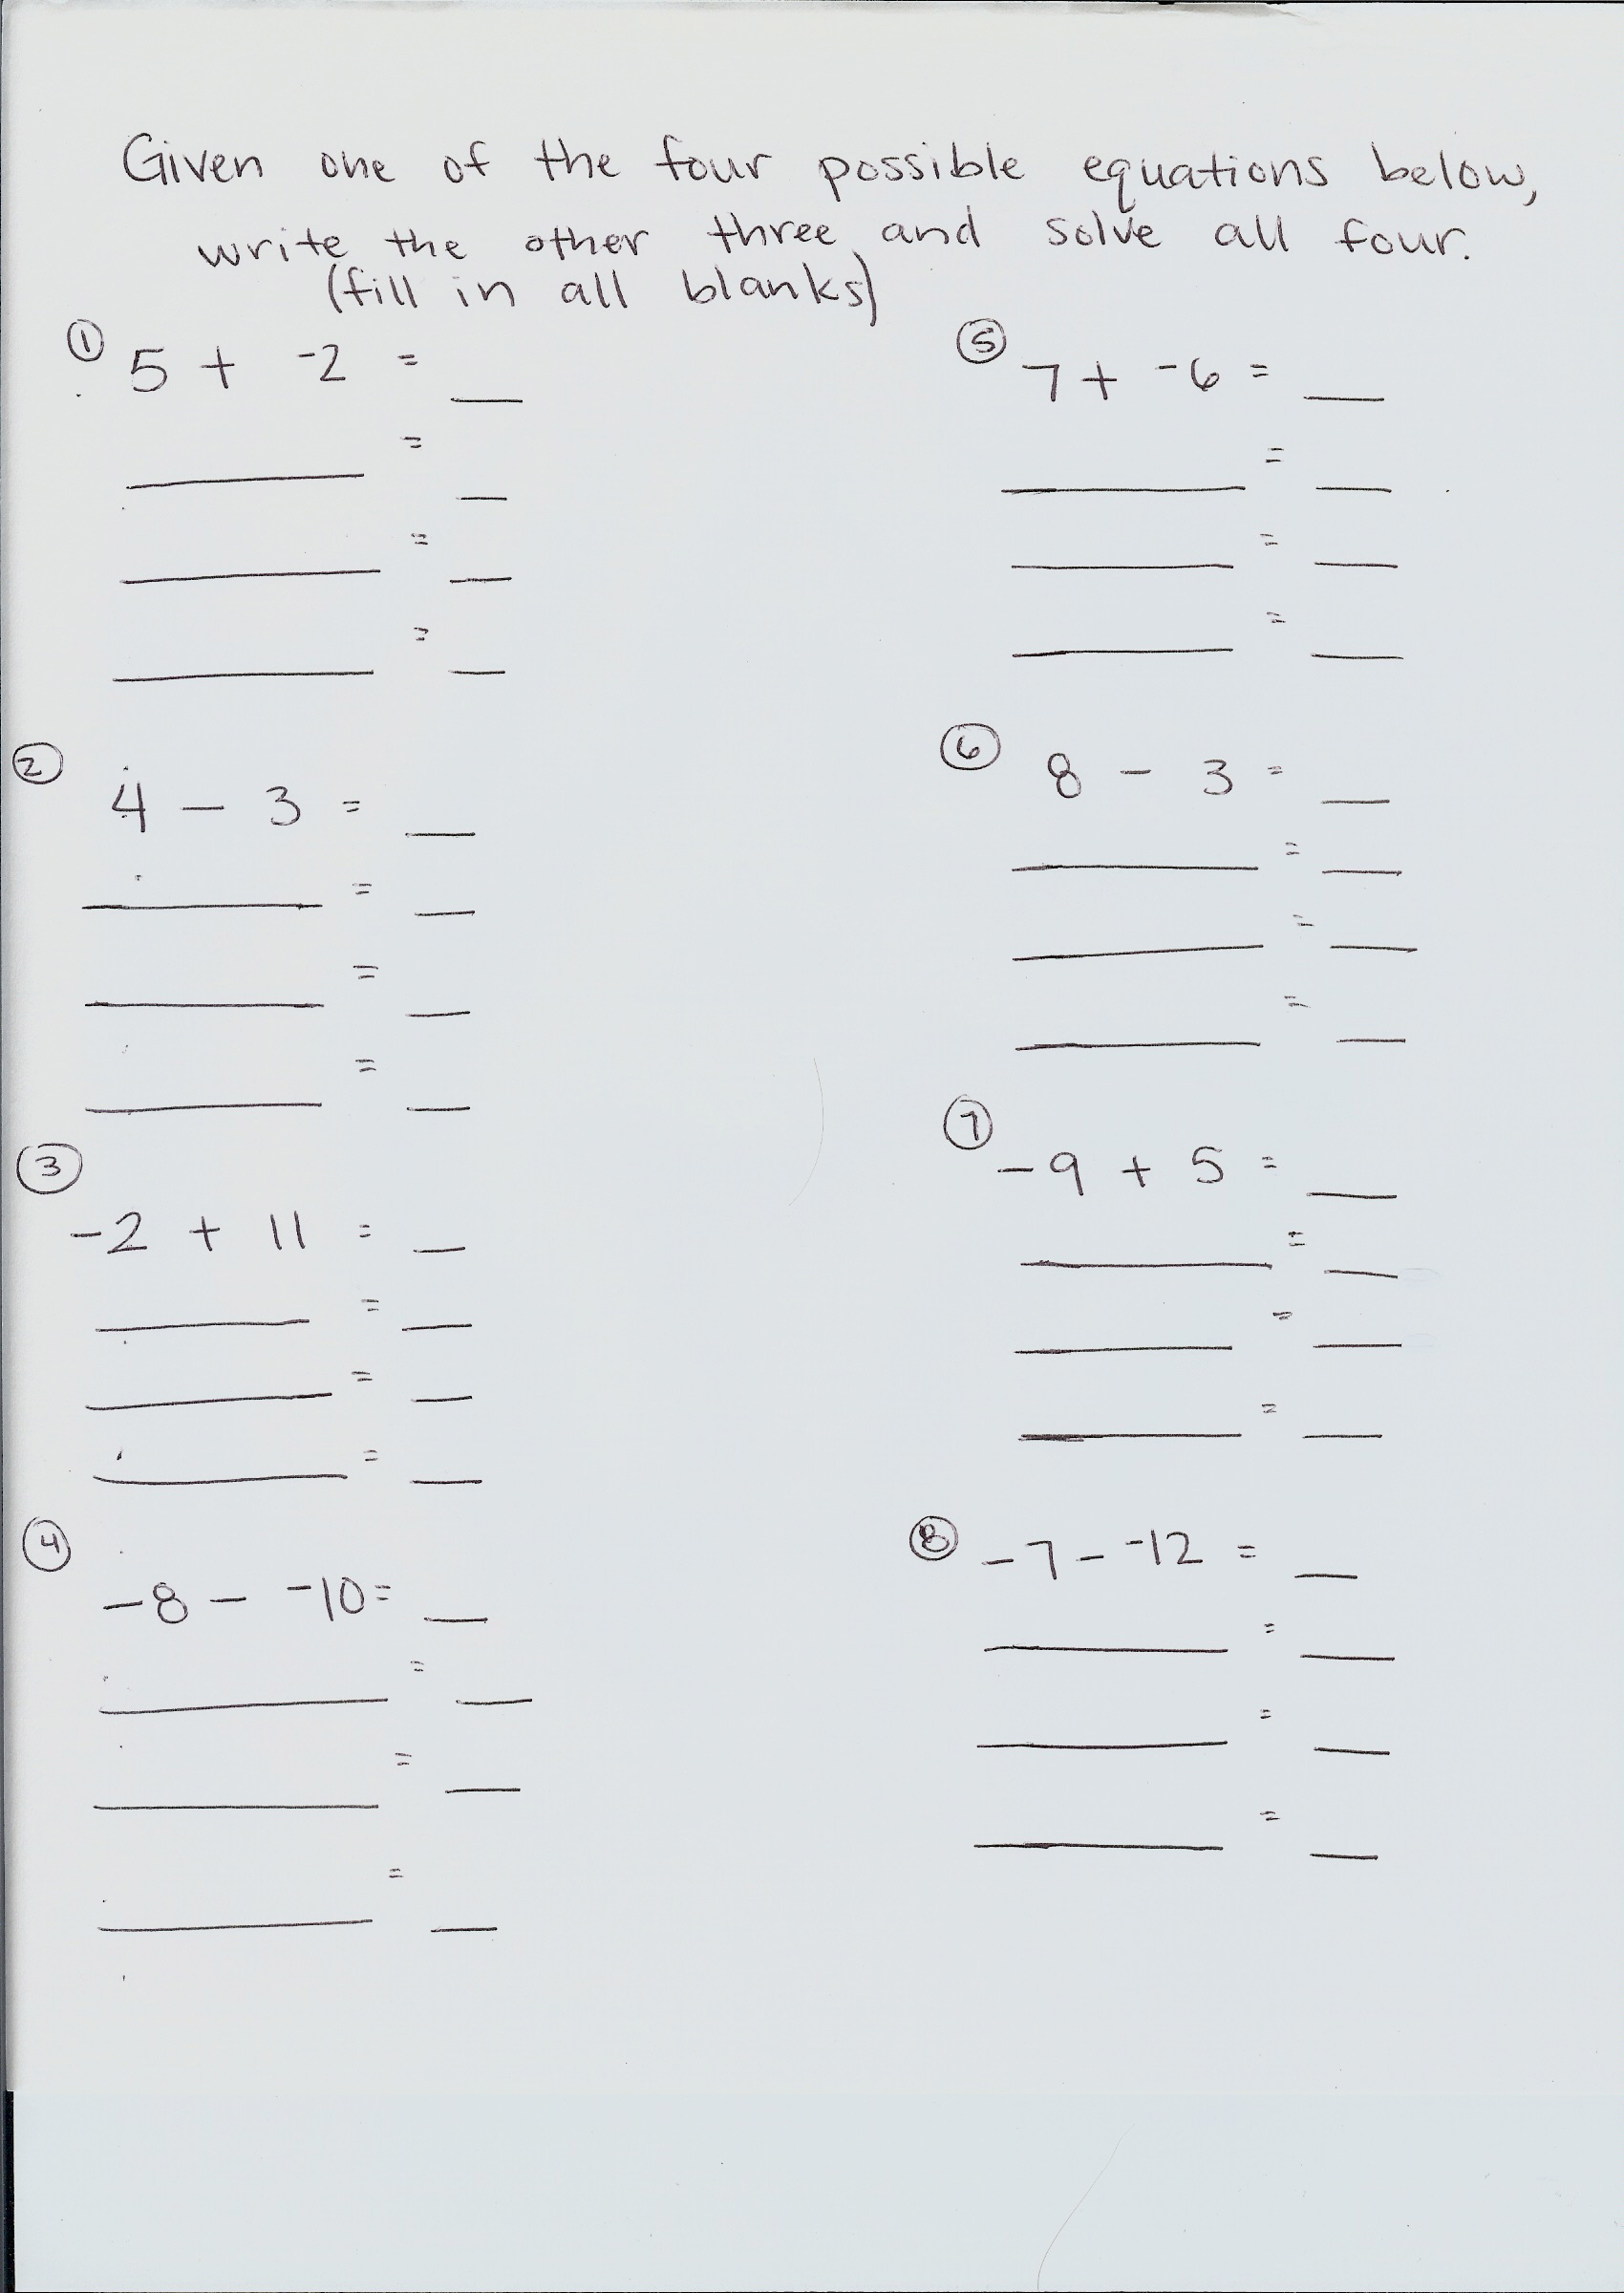 Given one of the four possible equations below,
write the other three and solve all four.
(fill in all blanks)
① 5 + -2 = __
__ = __
__ = __
__ = __
② 4 - 3 = __
__ = __
__ = __
__ = __
③ -2 + 11 = __
__ = __
__ = __
__ = __
④ -8 - -10 = __
__ = __
__ = __
__ = __
⑤ 7 + -6 = __
__ = __
__ = __
__ = __
⑥ 8 - 3 = __
__ = __
__ = __
__ = __
⑦ -9 + 5 = __
__ = __
__ = __
__ = __
⑧ -7 - -12 = __
__ = __
__ = __
__ = __